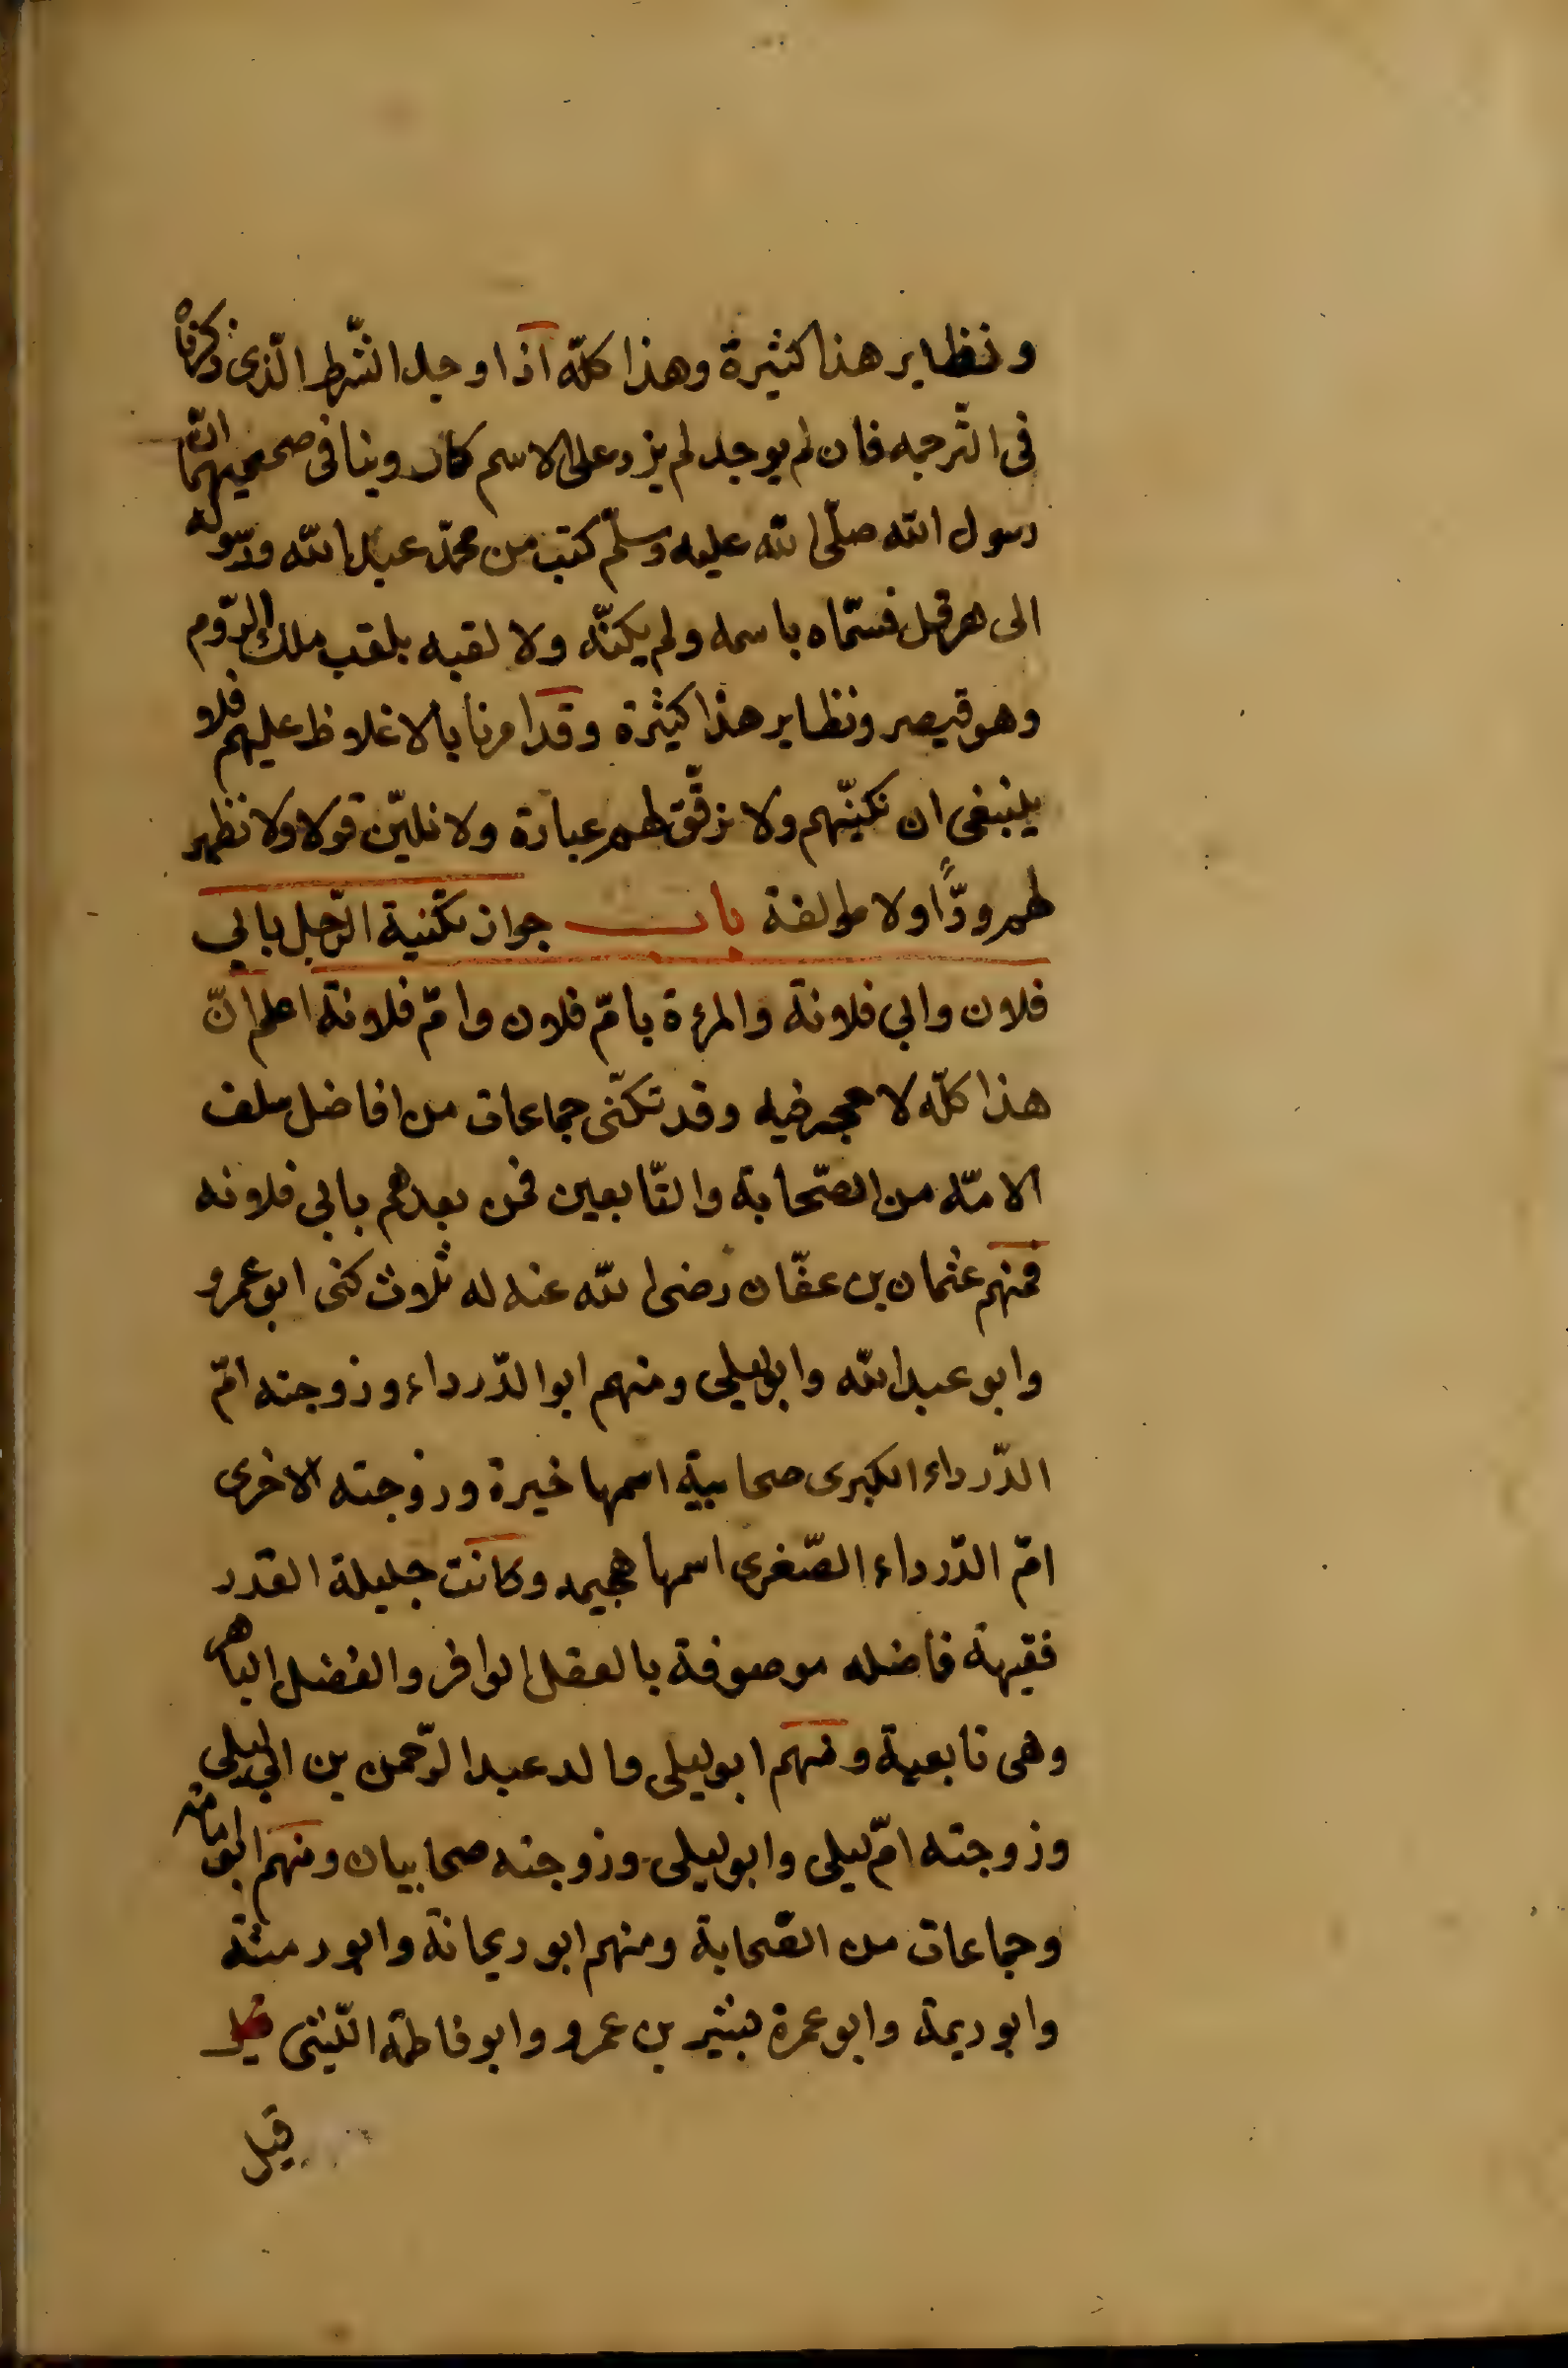 ونظاير هذا كثيرة وهذا كلّه اذا وجد الشّرط الّذى ذكرناه
فى التّرجمه فان لم يوجد لم يزد على الاسم كما روينا فى صحيحيهما انّ
رسول الله صلّى الله عليه وسلّم كتب من محمّد عبد الله ورسوله
الى هرقل فسمّاه باسمه ولم يكنّه ولا لقبه بلقب ملك الرّوم
وهو قيصر ونظاير هذا كثيرة وقد امرنا بالاغلاظ عليهم فلا
ينبغى ان نكنيّهم ولا نرقّق لهم عبارة ولا نليّن قولا ولا نظهر
لهم ودًّا ولا مؤالفة باب جواز تكنية الرّجل بابي
فلان وابي فلانة والمرءة بامّ فلان وامّ فلانة اعلم انّ
هذا كلّه لا حجر فيه وقد تكنّى جماعات من افاضل سلف
الامّه من الصّحابة والتّابعين فمن بعدهم بابى فلانه
فمنهم عثمان بن عفّان رضى الله عنه له ثلاث كنى ابو عمرو
وابو عبد الله وابو ليلى ومنهم ابو الدّرداء وزوجته امّ
الدّرداء الكبرى صحابية اسمها خيرة وزوجته الاخرى
امّ الدّرداء الصّغرى اسمها هجيمه وكانت جليلة القدر
فقيهة فاضله موصوفة بالعقل الوافر والفضل الباهر
وهى تابعية ومنهم ابو ليلى والد عبد الرّحمن بن ابى ليلى
وزوجته امّ ليلى وابو ليلى وزوجته صحابيان ومنهم ابو امامه
وجماعات من الصّحابة ومنهم ابو ريحانة وابو رمثة
وابو ريمة وابو عمرة بشير بن عمرو وابو فاطمة اللّيثى قيل
قيل